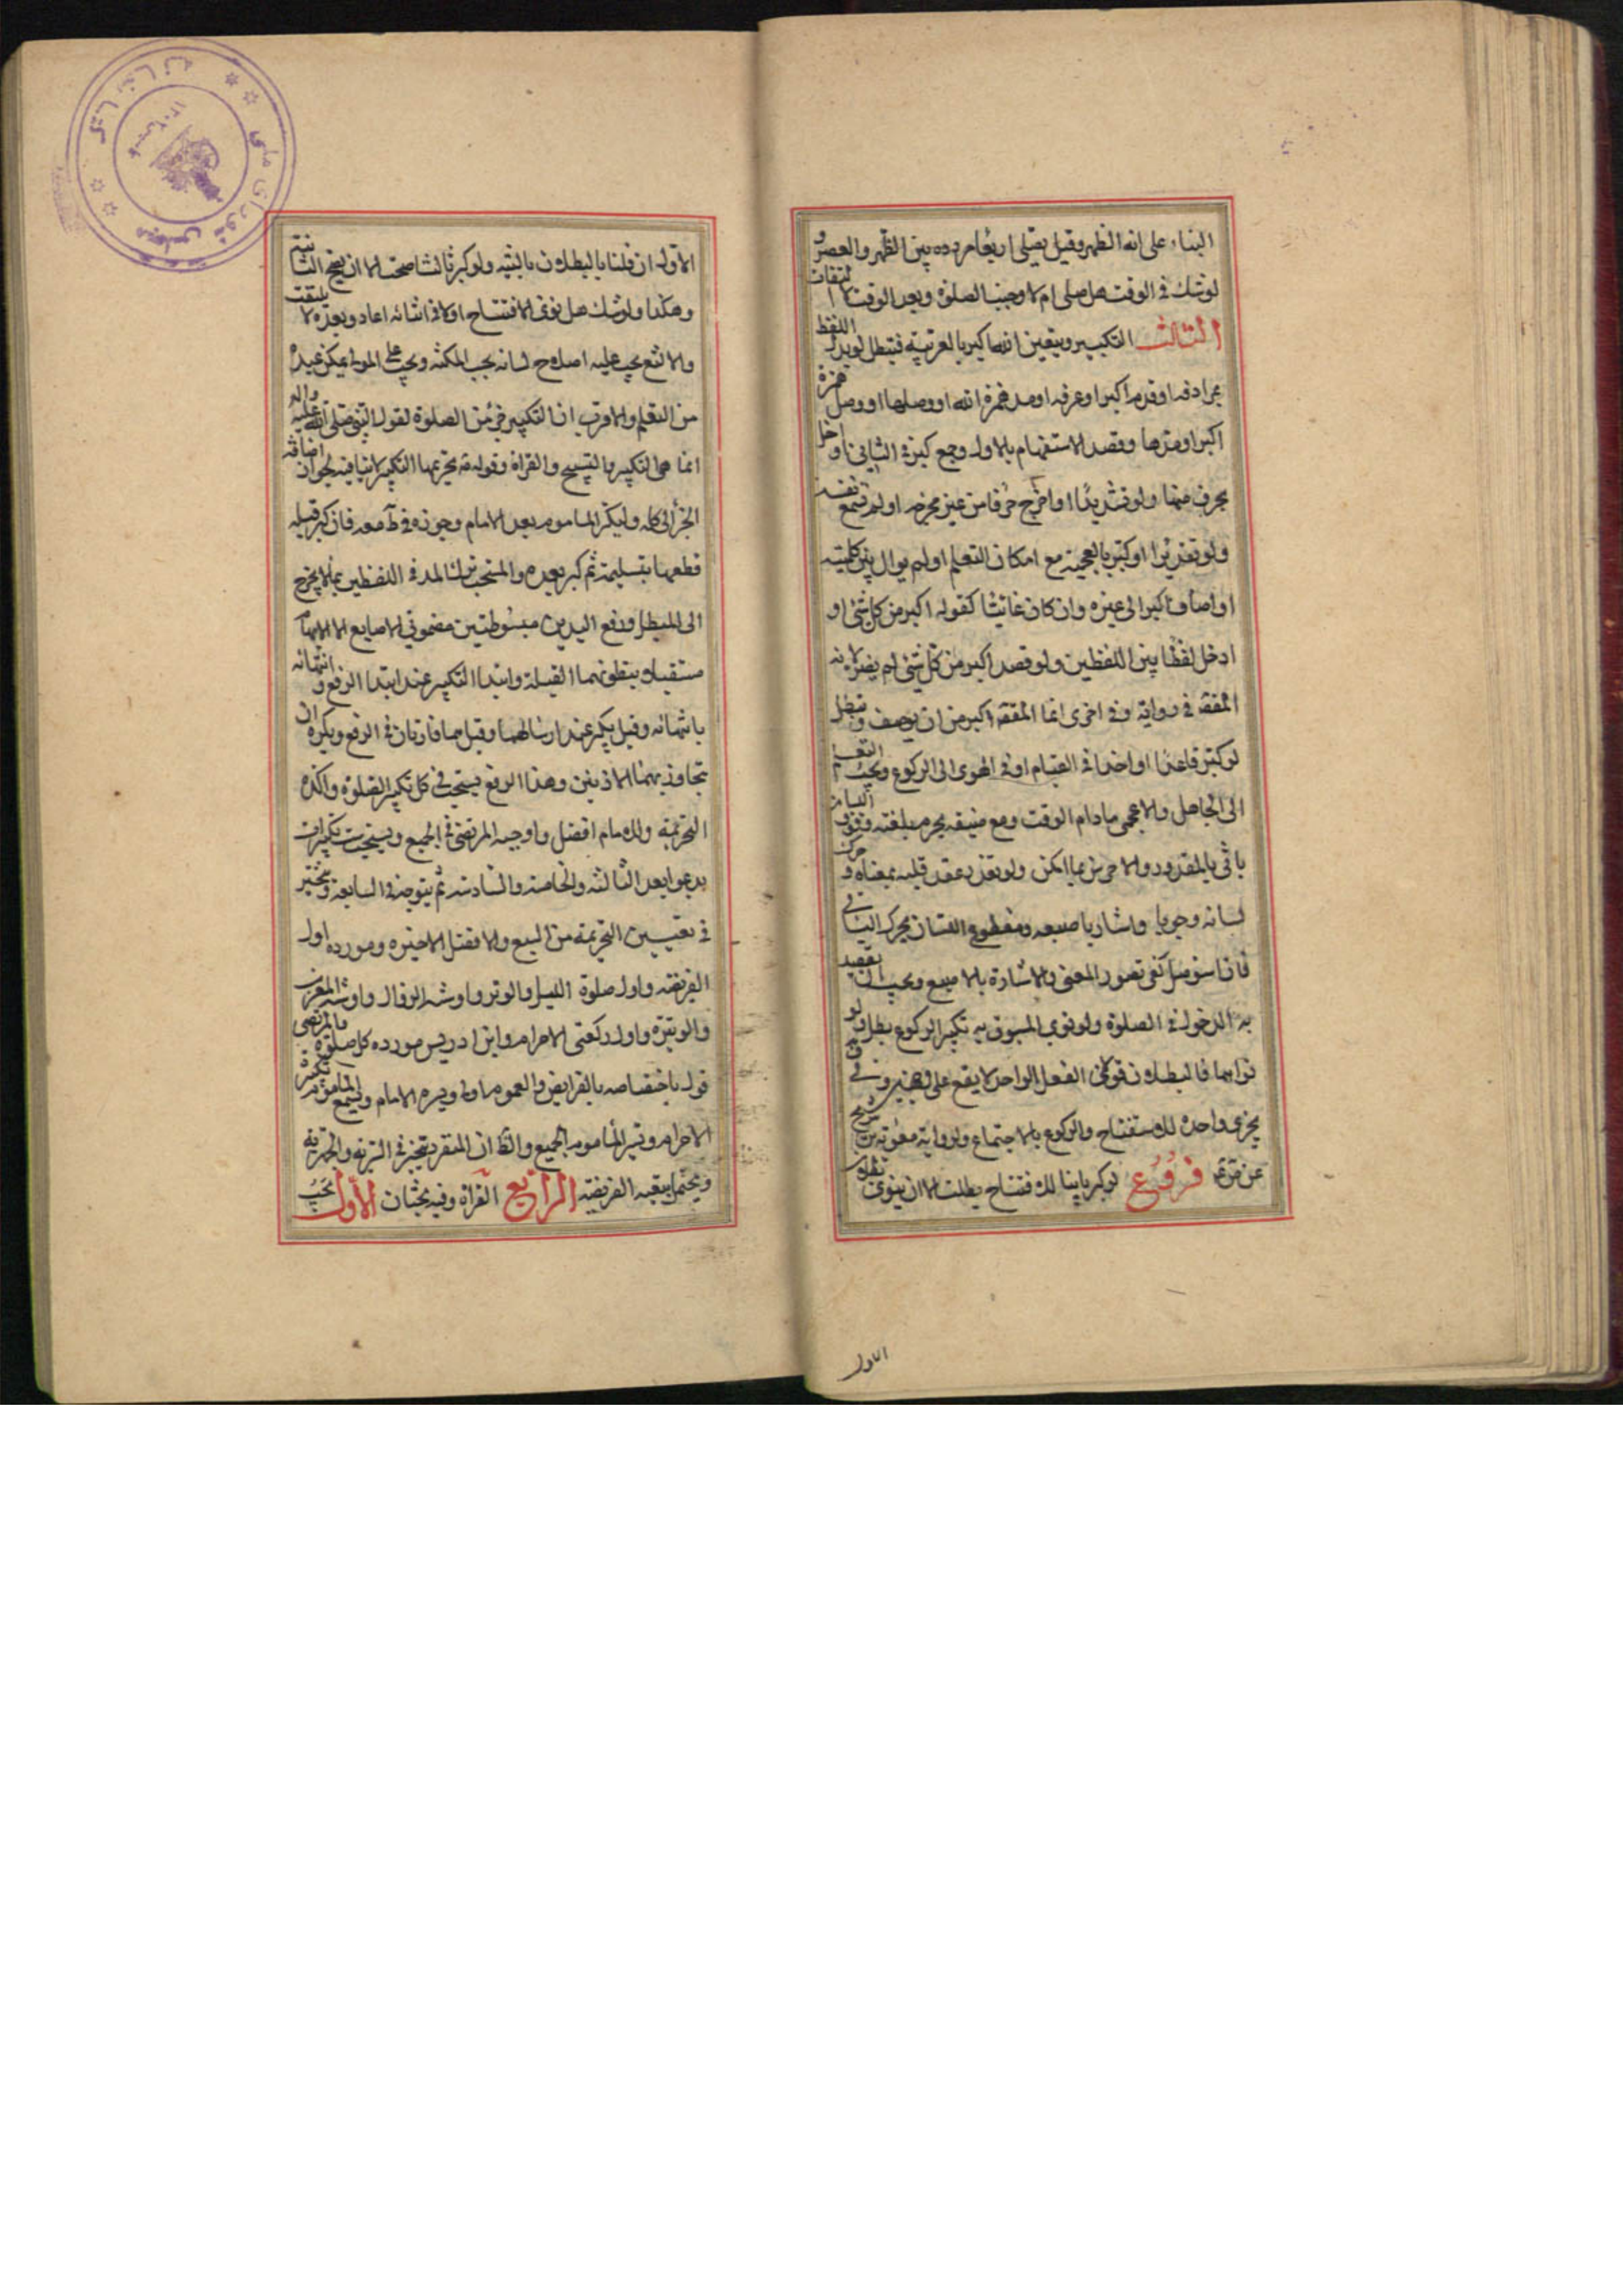 البناء على انه الظهر وقيل يصلى اربعا مردده بين الظهر والعصر و
لو شك فى الوقت هل صلى ام لا وجبت الصلوة وبعد الوقت لا التفات
الثالث التكبير ويتعين الله اكبر بالعربية فتبطل لو بدل اللفظ
بمرادفه او قدم اكبر او عرفه او مد همزة الله او وصلها او وصل همزة
اكبر او مدها وقصد الاستفهام بالاول وجمع كبر فى الثانى او اخل
بحرف منها ولو تشديدا او اخرج حرفا من غير مخرجه او لم تسمع نفسه
ولو تقديرا او كبر بالعجمية مع امكان التعلم او لم يوال بين كلمتيه
او اضاف اكبر الى غيره وان كان غائيا كقوله اكبر من كل شئ او
ادخل لفظا بين اللفظين ولو قصد اكبر من كل شئ لم يضر لانه
المفقه فى رواية وفى اخرى انما المفقه اكبر من ان يوصف وتبطل
لو كبر قاعدا او اخذا فى القيام او فى الهوى الى الركوع ويجب التعلم
الى الجاهل والاعجمى مادام الوقت ومع ضيقه يحرم بلغته
ياتى بالمقدور والاخرس بما امكن ولو تعذر عقد قلبه بمعناه و حرك
لسانه وجوبا واشار باصبعه ومقطوع اللسان يحرك الباقى
فان استوصل كفى تصور المعنى والاشارة بالاصبع ويجب ان يقصد
به الدخول فى الصلوة ولو نوى المسبوق به تكبير الركوع بطل ولو
نواهما فالبطلان قوى لان الفعل الواحد لا يقع على وجهين وفى
يجزى واحدة للاستفتاح والركوع بالاجتماع ولرواية معوية بن شريح
عن ص ع فروع لو كبر ثانيا للافتتاح بطلت الا ان ينوى بطلان
الاول
الاولى ان قلنا بالبطلان بالنية ولو كبر ثالثا صحت الا ان يصح الثانية
وهكذا ولو شك هل نوى الافتتاح اولا فى اثنائه اعاد وبعده لا يلتفت
والالثغ يجب عليه اصلاح لسانه بحسب المكنة ويجب على المولى تمكين عبده
من التعلم والاقرب ان التكبير جزء من الصلوة لقول النبى صلى الله عليه واله
انما هى التكبير والتسبيح والقراة وقوله تحريمها التكبير لا ينافيه لجواز اضافة
الجزء الى كله وليكبر الماموم بعد الامام وجوزه فى ط معه فان كبر قبله
قطعها بتسليمة ثم كبر بعده والمستحب ترك المد فى اللفظين بما لا يخرج
الى المبطل ورفع اليدين مبسوطتين مضمومتى الاصابع الا الابهام
مستقبلا ببطونهما القبلة وابتدا التكبير عند ابتدا الرفع وانتهائه
بانتهائه وقيل يكبر عند ارسالهما وقيل هما قارتان فى الرفع ويكره ان
يتجاوز بهما الاذنين وهذا الرفع يستحب فى كل تكبير الصلوة واكده
التحريمة وللامام افضل واوجبه المرتضى فى الجميع ويستحب ست تكبيرات
يدعو بعد الثالثة والخامسة والسادسة ثم يتوجه فى السابعة ويتخير
فى تعيين التحريمة من السبع والافضل الاخيرة ومورده اول
الفريضة واول صلوة الليل والوتر واول سنة الزوال واول سنة المغرب
والوتيرة واول ركعتى الاحرام وابن ادريس مورده كل صلوة وللمرتضى
قول باختصاصه بالفرايض والعموم اولى ويسر الامام ويسمع الماموم تكبيرة
الاحرام ويسر الماموم الجميع والظ ان المنفرد يتخير فى السرية والجهرية
ويحتمل بتبعيه الفريضة الرابع القراة وفيه بحثان الاول يجب